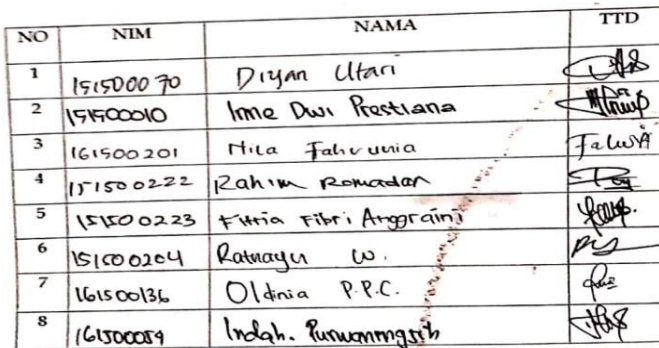 NO NIM NAMA TTD
1 151500070 Diyan Utari
2 151500010 Irme Dwi Prestiana
3 161500201 Nila Fahrunia
4 151500222 Rahim Romadan
5 151500223 Fitria Fibri Anggraini
6 151500204 Ratnayu W.
7 161500136 Oldinia P.P.C.
8 161500054 Indah. Purwaningsih